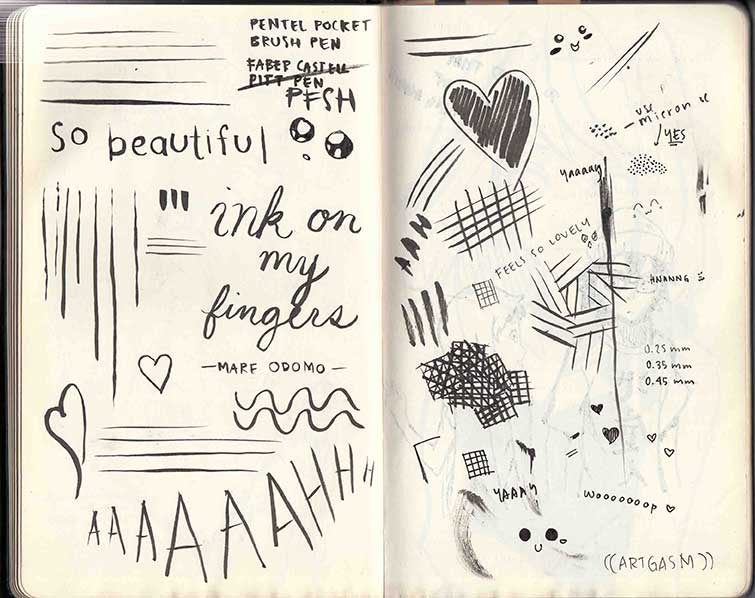 PENTEL POCKET
BRUSH PEN
FABER CASTELL
PITT PEN
PFSH
so beautiful
ink on
my
fingers
—MARE ODOMO—
AAAAAAAHHHH
use
micron
YES
yaaaay
AAH
FEELS SO LOVELY
HNANNG
0.25 mm
0.35 mm
0.45 mm
YAAAY
wooooooop
((ARTGASM))